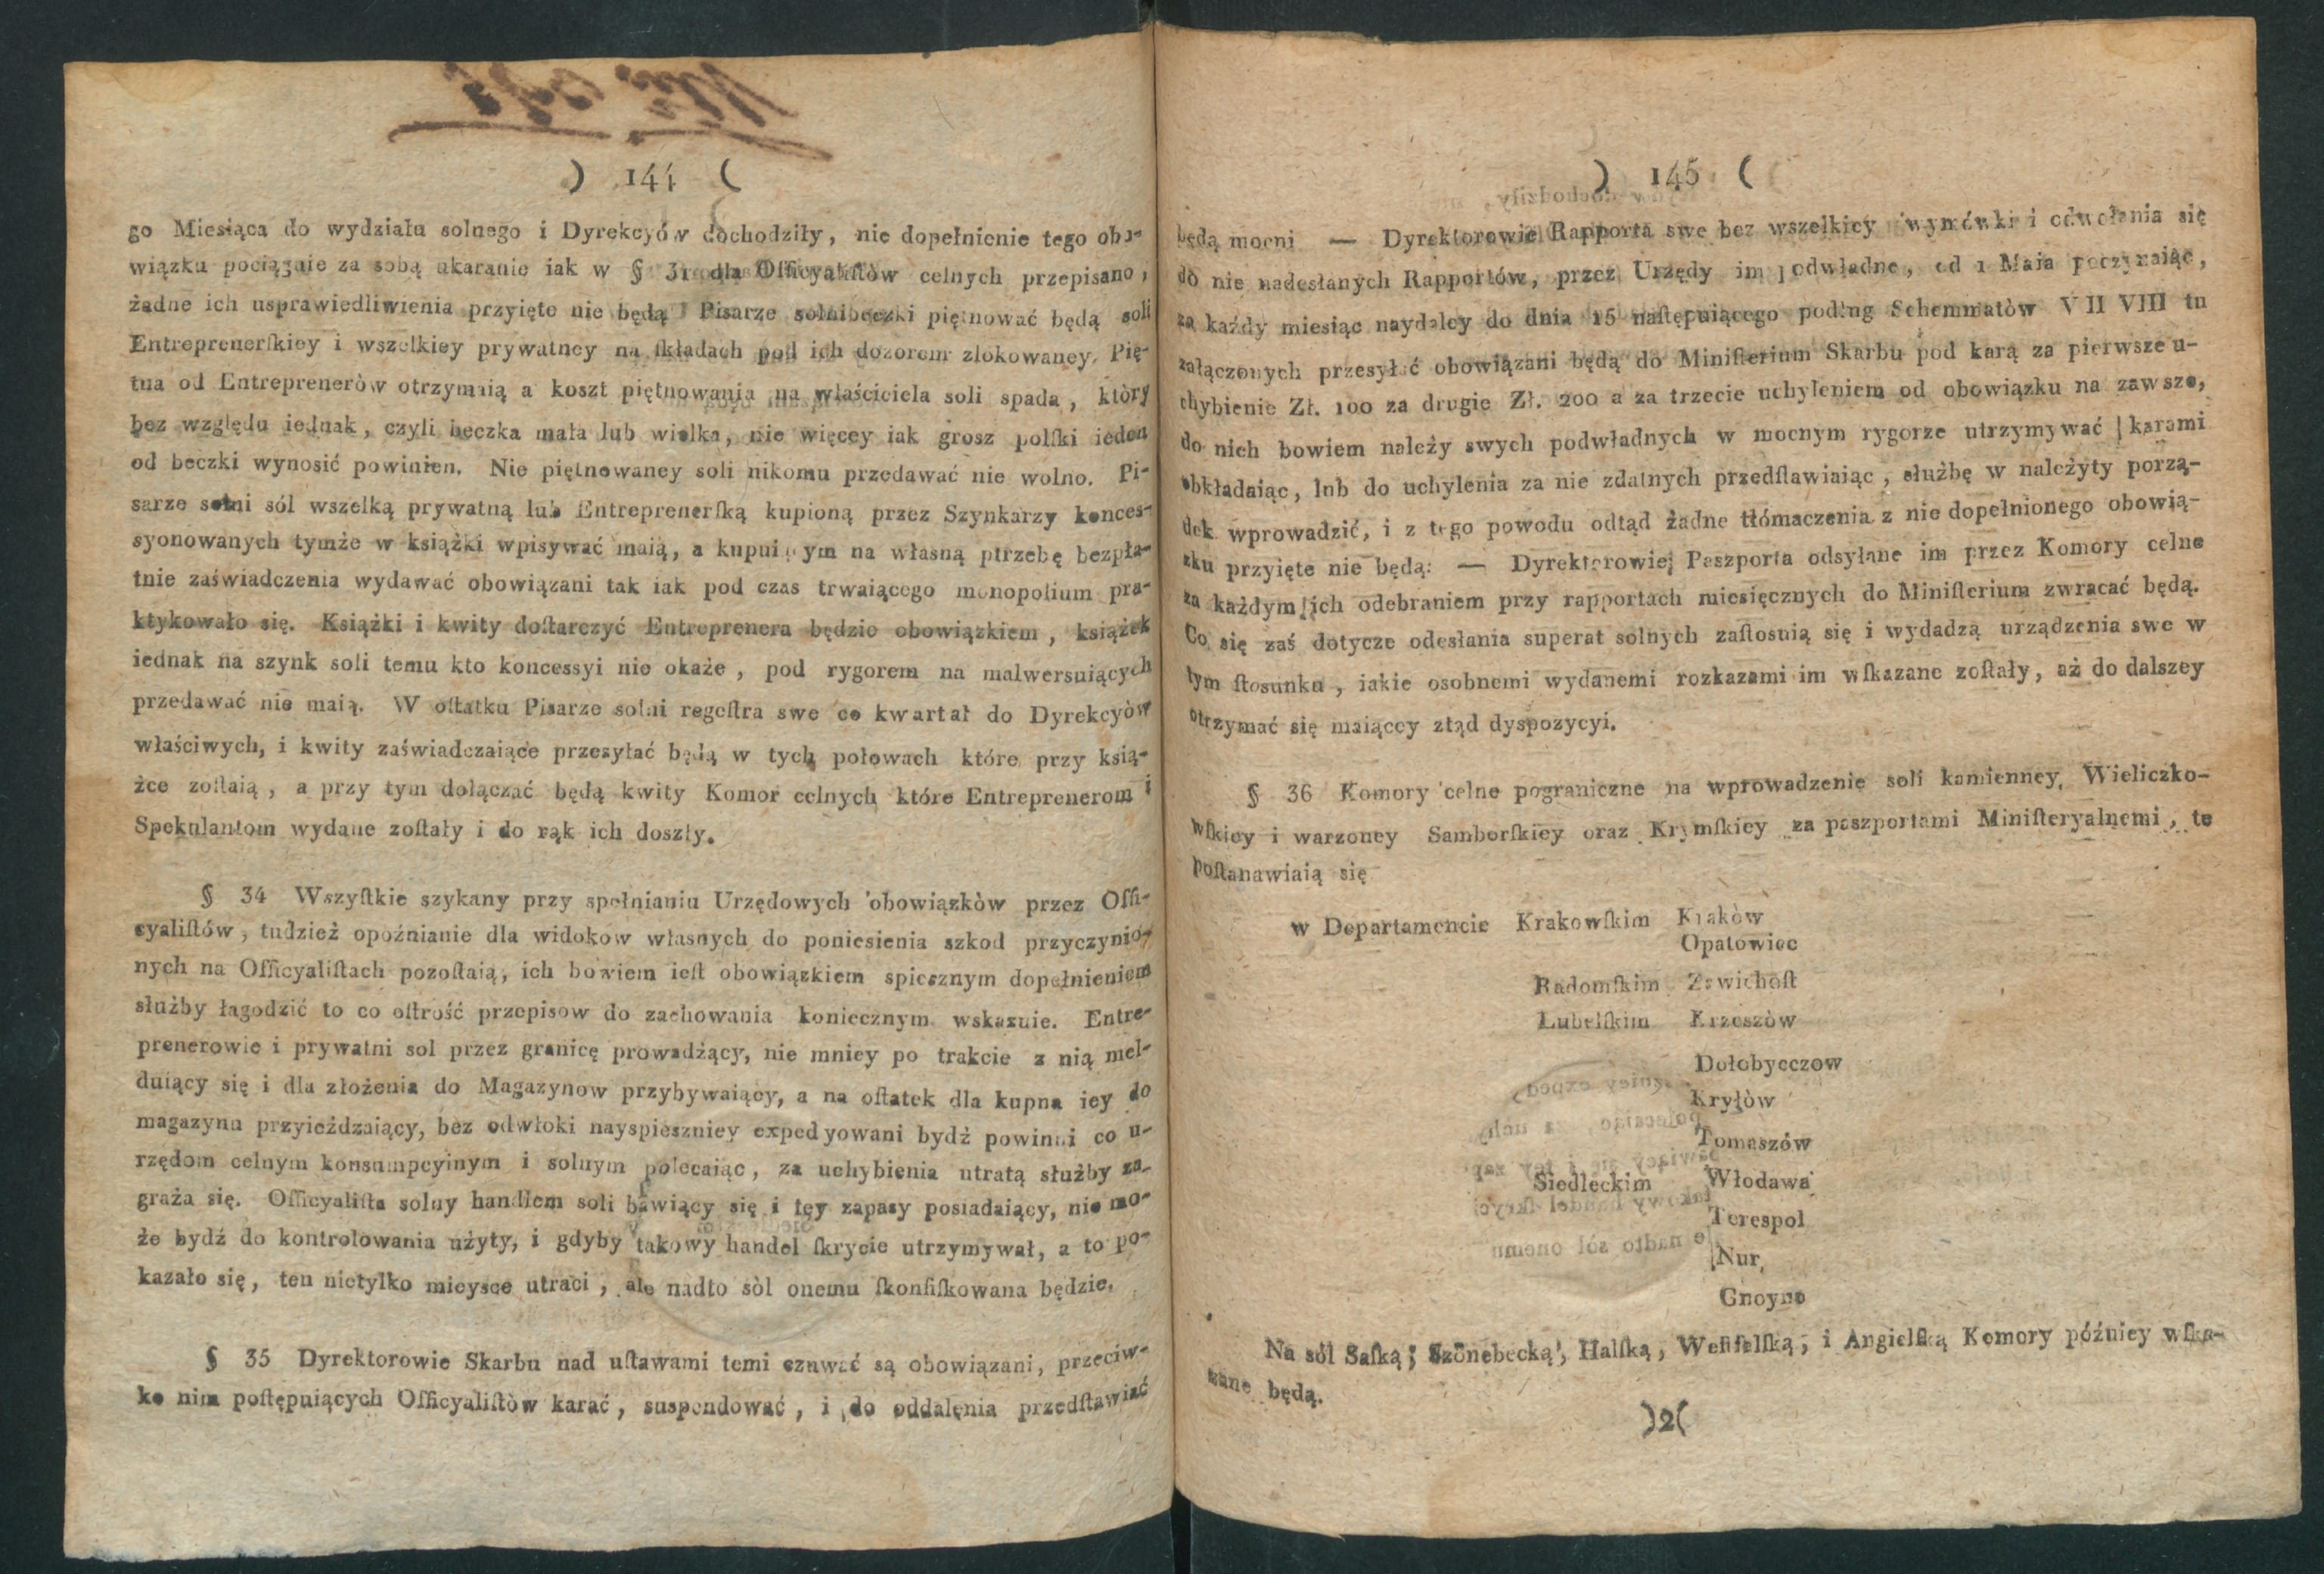 ) 144 (
go Miesiąca do wydziału solnego i Dyrekcyów dochodziły, nie dopełnienie tego obo-
wiązku pociągnie za sobą ukaranie iak w § 31 dla Officyalistów celnych przepisano,
żadne ich usprawiedliwienia przyięte nie będą Pisarze solni beczki piętnować będą soli
Entreprenerſkiey i wszelkiey prywatney na ſkładach pod ich dozorem zlokowaney. Pię-
tna od Entrepreneròw otrzymaią a koszt piętnowania na właściciela soli spada, ktòry
bez względu iednak, czyli beczka mała lub wielka, nie więcey iak grosz polſki ieden
od beczki wynosić powinien. Nie piętnowaney soli nikomu przedawać nie wolno. Pi-
sarze solni sól wszelką prywatną lub Entreprenerſką kupioną przez Szynkarzy konces-
syonowanych tymże w książki wpisywać maią, a kupuiącym na własną ptrzebę bezpła-
tnie zaświadczenia wydawać obowiązani tak iak pod czas trwaiącego monopolium pra-
ktykowało się. Książki i kwity doſtarczyć Entreprenera będzie obowiązkiem, książek
iednak na szynk soli temu kto koncessyi nie okaże, pod rygorem na malwersuiących
przedawać nie maią. W oſtatku Pisarze solni regeſtra swe co kwartał do Dyrekcyòw
właściwych, i kwity zaświadczaiące przesyłać będą w tych połowach które przy ksią-
żce zoſtaią, a przy tym dołączać będą kwity Komor celnych które Entreprenerom i
Spekulantom wydane zoſtały i do rąk ich doszły.
§ 34 Wszyſtkie szykany przy spełnianiu Urzędowych obowiązkòw przez Offi-
cyaliſtów, tudzież opoźnianie dla widokow własnych do poniesienia szkod przyczynio-
nych na Officyaliſtach pozoſtaią, ich bowiem ieſt obowiązkiem spiesznym dopełnieniem
służby łagodzić to co oſtrość przepisow do zachowania koniecznym wskazuie. Entre-
prenerowie i prywatni sol przez granicę prowadzący, nie mniey po trakcie z nią mel-
duiący się i dla złożenia do Magazynow przybywaiący, a na oſtatek dla kupna iey do
magazynu przyieżdzaiący, bez odwłoki nayspieszniey expedyowani bydź powinni co u-
rzędom celnym konsumpcyinym i solnym polecaiąc, za uchybienia utratą służby za-
graża się. Officyaliſta solny handlem soli bawiący się i tey zapasy posiadaiący, nie mo-
że bydź do kontrolowania użyty, i gdyby takowy handel ſkrycie utrzymywał, a to po-
kazało się, ten nietylko mieysce utraci, ale nadto sòl onemu ſkonfiſkowana będzie.
§ 35 Dyrektorowie Skarbu nad uſtawami temi czuwać są obowiązani, przeciw-
ko nim poſtępuiących Officyaliſtòw karać, suspendować, i do oddalenia przedſtawiać
) 145 (
będą mocni — Dyrektorowie Rapporta swe bez wszelkiey wymówki i odwołania się
do nie nadesłanych Rapportów, przez Urzędy im podwładne, od 1 Maia poczynaiąc,
za każdy miesiąc naydaley do dnia 15 naſtępuiącego podług Schemmatòw VII VIII tu
załączonych przesyłać obowiązani będą do Miniſterium Skarbu pod karą za pierwsze u-
chybienie Zł. 100 za drugie Zł. 200 a za trzecie uchyleniem od obowiązku na zawsze,
do nich bowiem należy swych podwładnych w mocnym rygorze utrzymywać karami
obkładaiąc, lub do uchylenia za nie zdatnych przedſtawiaiąc, służbę w należyty porzą-
dek wprowadzić, i z tego powodu odtąd żadne tłómaczenia z nie dopełnionego obowią-
zku przyięte nie będą: — Dyrektorowie Paszporta odsyłane im przez Komory celne
za każdym ich odebraniem przy rapportach miesięcznych do Miniſterium zwracać będą.
Co się zaś dotycze odesłania superat solnych zaſtosuią się i wydadzą urządzenia swe w
tym ſtosunku, iakie osobnemi wydanemi rozkazami im wſkazane zoſtały, aż do dalszey
otrzymać się maiącey ztąd dyspozycyi.
§ 36 Komory celne pograniczne na wprowadzenie soli kamienney, Wieliczko-
wſkiey i warzoney Samborſkiey oraz Krymſkiey za paszportami Miniſteryalnemi, te
poſtanawiaią się
w Departamencie Krakowſkim Krakòw
Opatowiec
Radomſkim Zawichoſt
Lubelſkim Krzeszòw
Dołobyeczow
Kryłòw
Tomaszów
Siedleckim Włodawa
Terespol
Nur,
Gnoyno
Na sòl Saſką; Szönebecką, Halſką, Weſſelſką, i Angielſką Komory później wſka-
zane będą.
)2(